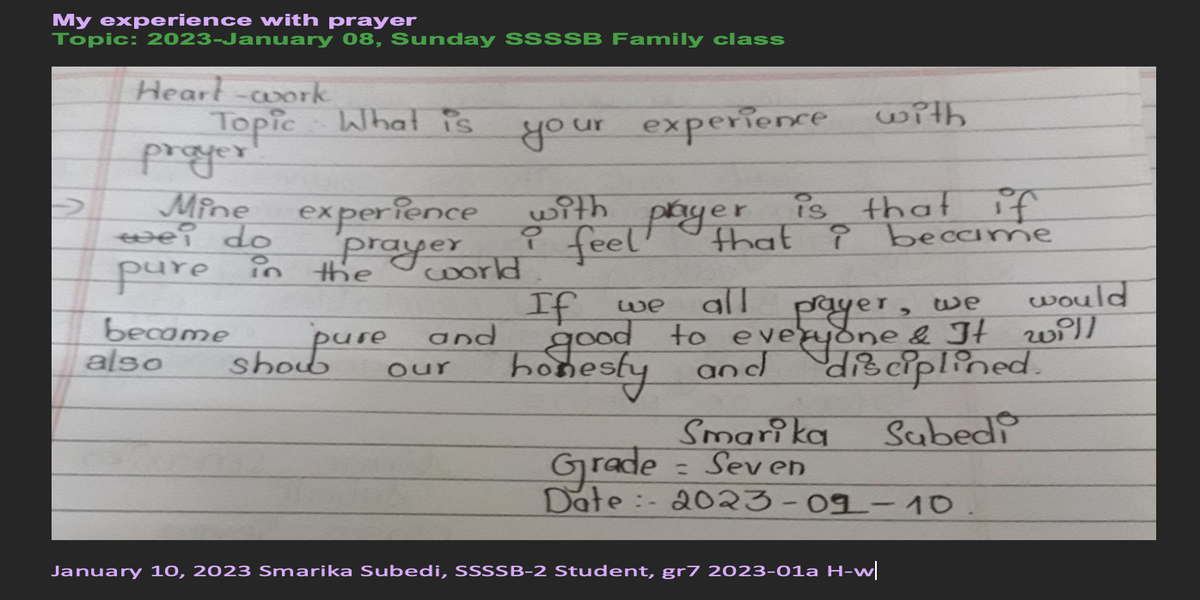 My experience with prayer
Topic: 2023-January 08, Sunday SSSSB Family class
Heart-work
Topic: What is your experience with
prayer
→ Mine experience with prayer is that if
i do prayer i feel that i become
pure in the world.
If we all prayer, we would
become pure and good to everyone & It will
also show our honesty and disciplined.
Smarika Subedi
Grade = Seven
Date :- 2023-01-10.
January 10, 2023 Smarika Subedi, SSSSB-2 Student, gr7 2023-01a H-w